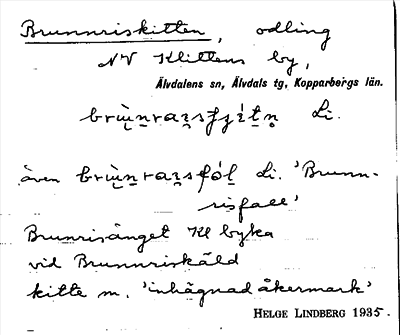 Brunnriskitten, odling
NV Klittens by,
Älvdalens sn, Älvdals tg, Kopparbergs län.
Li.
även Li. 'Brunn-
risfall'
Brunrisänget Kl byka
vid Brunnriskäld
kitte m. 'inhägnad åkermark'
HELGE LINDBERG 1935.